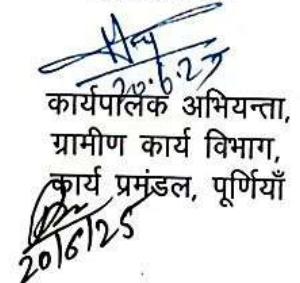 20.6.25
कार्यपालक अभियन्ता,
ग्रामीण कार्य विभाग,
कार्य प्रमंडल, पूर्णियाँ
20/6/25